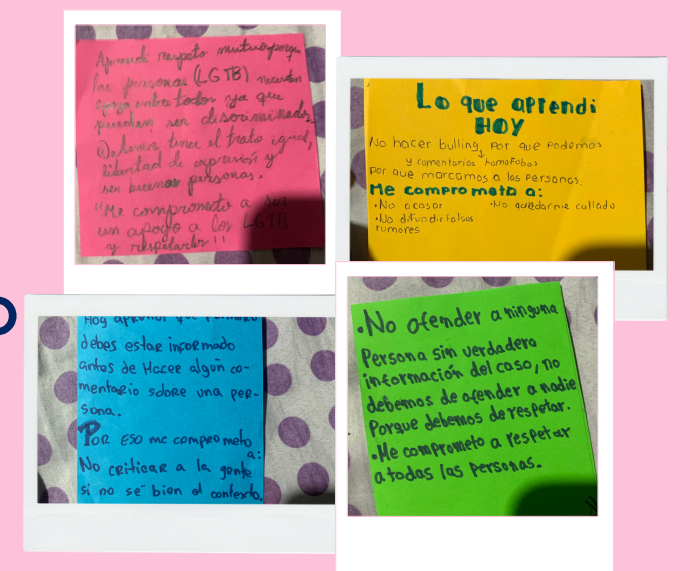 Aprendí respeto mutuo porque
las personas (LGTB) necesitan
apoyo entre todos ya que
pueden ser discriminados
Debemos tener el trato igual,
libertad de expresión y
ser buenas personas.
"Me comprometo a ser
un apoyo a los LGTB
y respetarlos"!
Lo que aprendi
HOY
No hacer bulling, por que podemos
y comentarios homofobos
por que marcamos a las personas.
Me comprometo a:
•No acosar •No quedarme callado
•No difundir falsos
rumores
Hoy aprendí que primero
debes estar informado
antes de Hacer algún co-
mentario sobre una per-
sona.
POR ESO me comprometo
a:
No criticar a la gente
si no sé bien el contexto.
•No ofender a ninguna
Persona sin verdadera
información del caso, no
debemos de ofender a nadie
Porque debemos de respetar.
•Me comprometo a respetar
a todas las personas.